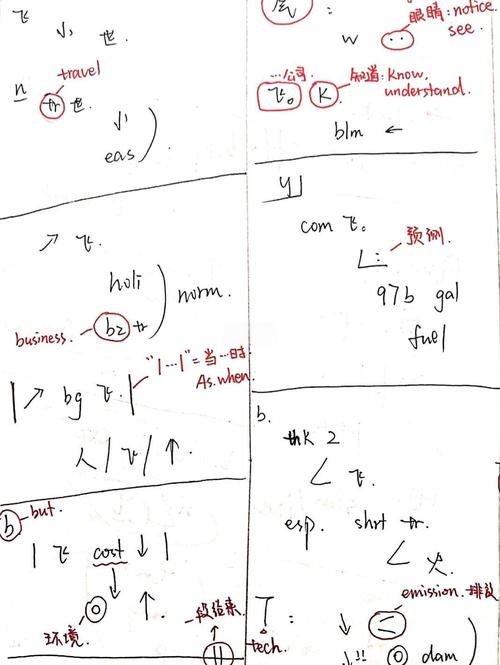 飞
小 世.
travel
n
tr 世.
小
eas
↗ 飞.
holi
norm.
business.
bz tr
"|…|"=当…时
As. when.
| ↗ bg 飞. |
人 / 飞 / ↑.
b
but.
| 飞 cost ↓ |
↓
◎ ↑.
环境.
一段结束
||
:
眼睛: notice.
see.
w
…公司.
知道: know,
understand.
飞。
K
blm ←
y]
com 飞。
预测.
∠:
97b gal
fuel
b.
thk 2
∠ 飞.
esp. shrt tr.
∠ 火.
emission. 排放
T :
↓
tech.
↓!! ◎ dam